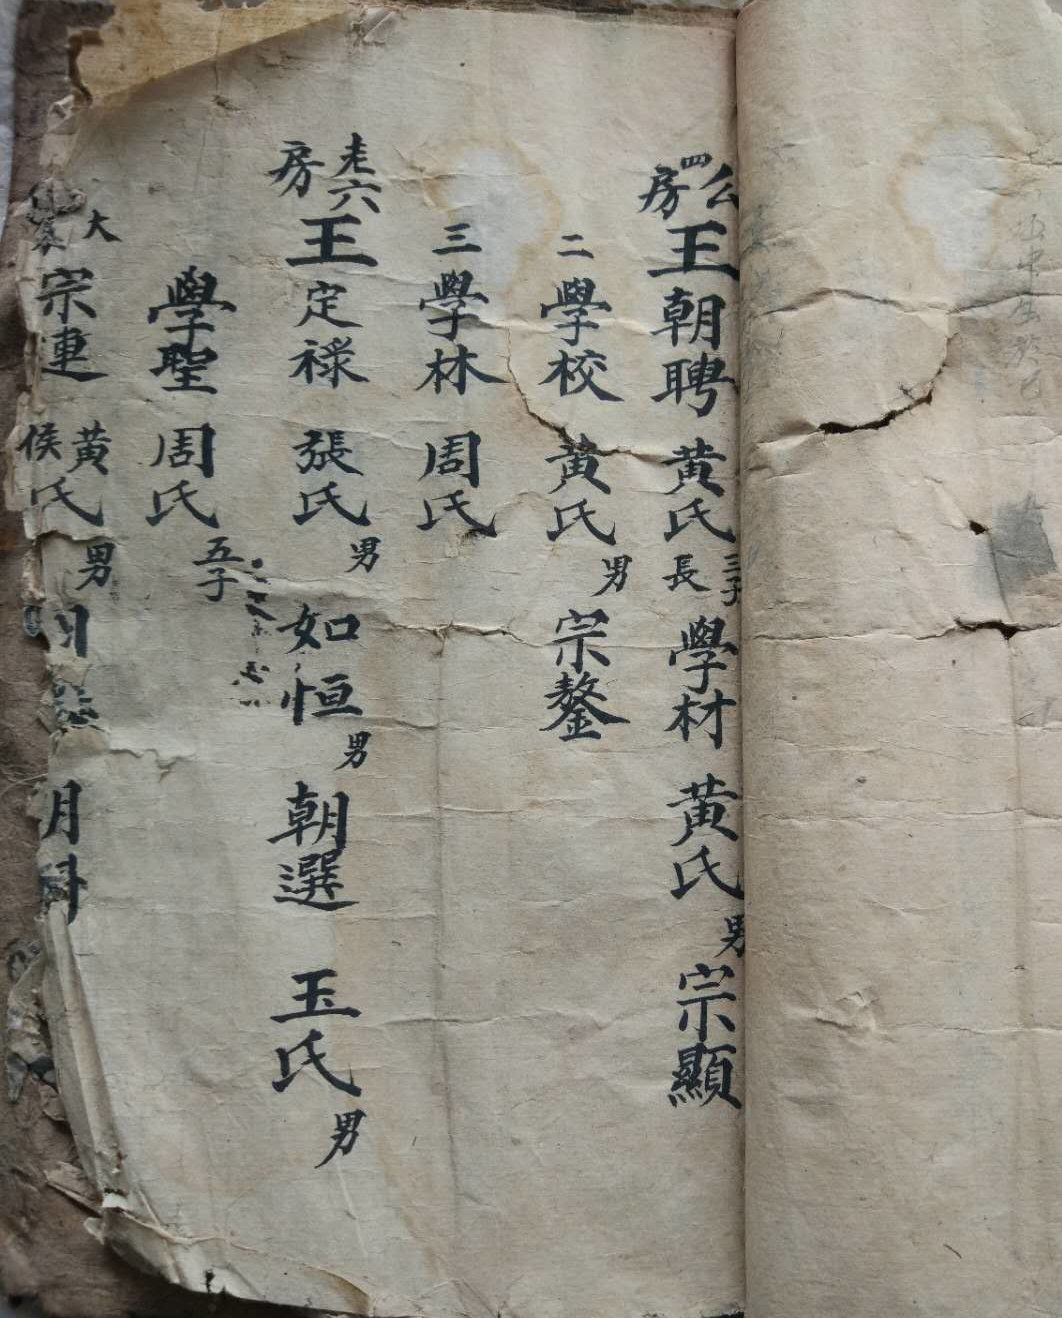 公四房王朝聘黄氏三子長學材黄氏男宗顯
二學校黄氏男宗鏊
三學林周氏
老六房王定禄張氏男如恒男朝選玉氏男
學聖周氏五子
大宗連黄侯氏男